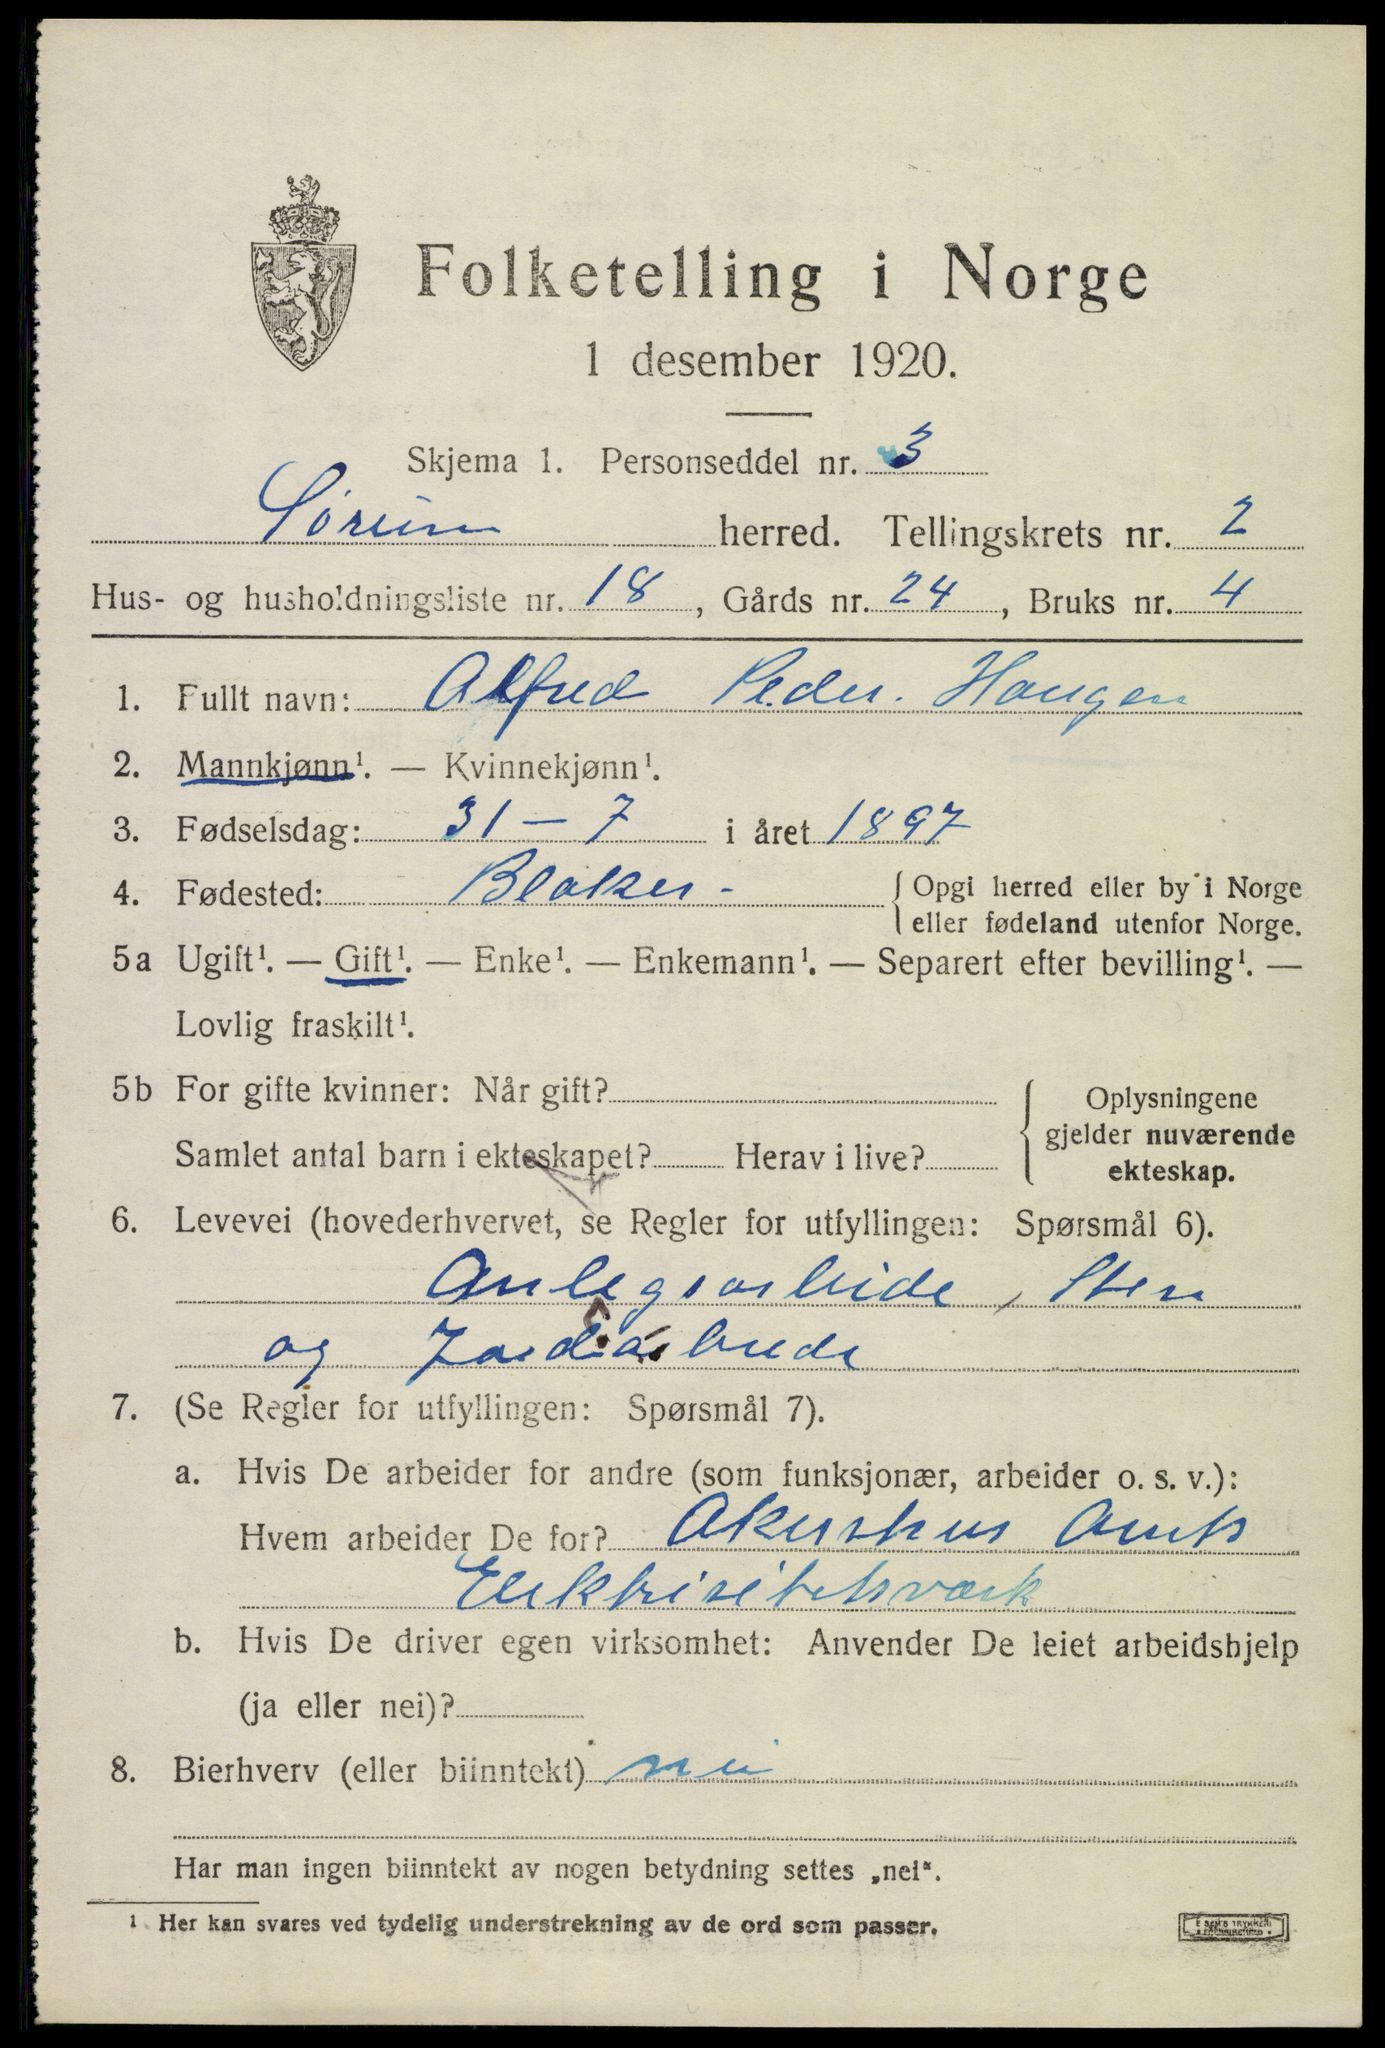 Folketelling i Norge
1 desember 1920.
Skjema 1. Personseddel nr. 3
Sørum herred. Tellingskrets nr. 2
Hus- og husholdningsliste nr. 18, Gårds nr. 24, Bruks nr. 4
1. Fullt navn: Alfred Peder. Haugen
2. Mannkjønn¹. — Kvinnekjønn¹.
3. Fødselsdag: 31 – 7 i året 1897
4. Fødested: Blaker - Opgi herred eller by i Norge
eller fødeland utenfor Norge.
5a Ugift¹. — Gift¹. — Enke¹. — Enkemann¹. — Separert efter bevilling¹. —
Lovlig fraskilt¹.
5b For gifte kvinner: Når gift? Oplysningene
gjelder nuværende
Samlet antal barn i ekteskapet? Herav i live?
ekteskap.
6. Levevei (hovederhvervet, se Regler for utfyllingen: Spørsmål 6).
Anlegsarbeide, Sten
og Jordarbeide
7. (Se Regler for utfyllingen: Spørsmål 7).
a. Hvis De arbeider for andre (som funksjonær, arbeider o. s. v.):
Hvem arbeider De for? Akershus Amts
Elektrisitetsværk
b. Hvis De driver egen virksomhet: Anvender De leiet arbeidshjelp
(ja eller nei)?
8. Bierhverv (eller biinntekt) nei
Har man ingen biinntekt av nogen betydning settes „nei“.
¹ Her kan svares ved tydelig understrekning av de ord som passer.